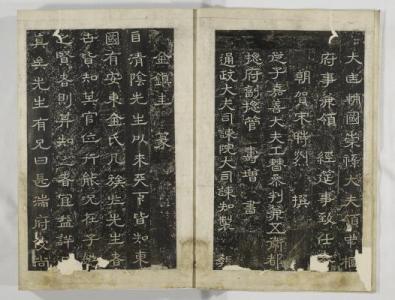 大匡輔國崇祿大夫領中樞
府事兼領 經筵事致仕
朝賀宋時烈 撰
從子嘉善大夫工曹參判兼五衛都
摠府副摠管 壽增 書
通政大夫司諫院大司諫知製
金鎭圭 篆
自淸陰先生以來天下皆知東
國有安東金氏凡族出先生者
皆知其官位行能況在子
之賢者則其知之者宜益詳
眞矣先生有兄曰長湍府使尙